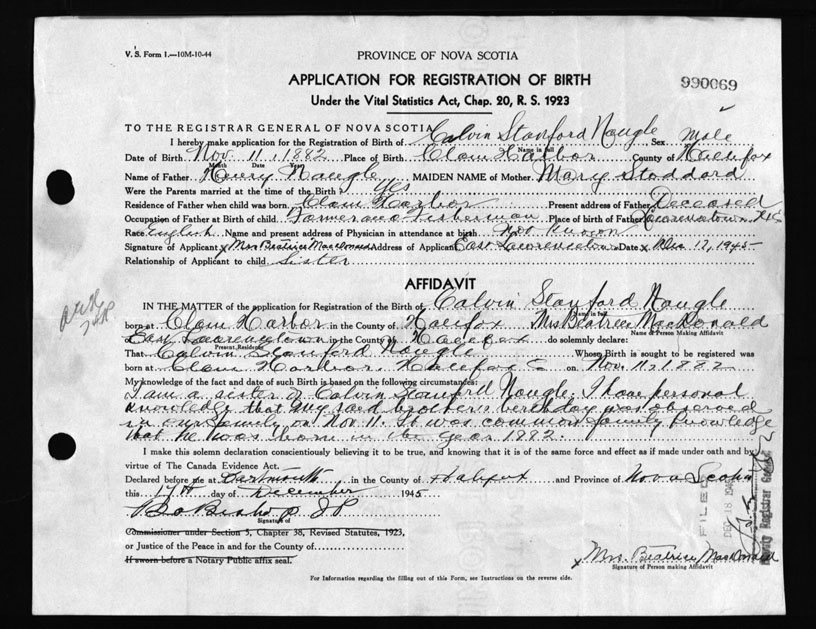 V. S. Form 1.—10M-10-44
PROVINCE OF NOVA SCOTIA
APPLICATION FOR REGISTRATION OF BIRTH
990069
Under the Vital Statistics Act, Chap. 20, R. S. 1923
TO THE REGISTRAR GENERAL OF NOVA SCOTIA
I hereby make application for the Registration of Birth of Calvin Stanford Naugle Sex Male
Name in full
Date of Birth Nov. 11, 1882 Place of Birth Clam Harbor County of Halifax
Month Date Year
Name of Father Henry Naugle MAIDEN NAME of Mother Mary Stoddard
Were the Parents married at the time of the Birth? Yes
Residence of Father when child was born Clam Harbor Present address of Father Deceased
Occupation of Father at Birth of child Farmer and Fisherman Place of birth of Father Lawrencetown
Race English Name and present address of Physician in attendance at birth Not known
Signature of Applicant x Mrs Beatrice MacDonald Address of Applicant East Lawrencetown Date x Dec 17, 1945
Relationship of Applicant to child Sister
AFFIDAVIT
IN THE MATTER of the application for Registration of the Birth of Calvin Stanford Naugle
Name in full
born at Clam Harbor in the County of Halifax Mrs Beatrice MacDonald
Name of Person Making Affidavit
East Lawrencetown in the County of Halifax do solemnly declare:
Present Residence
That Calvin Stanford Naugle Whose Birth is sought to be registered was
born at Clam Harbor, Halifax C on Nov. 11, 1882
My knowledge of the fact and date of such Birth is based on the following circumstances:
I am a sister of Calvin Stanford Naugle. I have personal
knowledge that my said brother's birthday was observed
in our family on Nov 11. It was common family knowledge
that he was born in the year 1882.
I make this solemn declaration conscientiously believing it to be true, and knowing that it is of the same force and effect as if made under oath and by
virtue of The Canada Evidence Act.
Declared before me at Dartmouth in the County of Halifax and Province of Nova Scotia
this 17th day of December 1945
Bishop JP
Signature of
Commissioner under Section 3, Chapter 38, Revised Statutes, 1923,
or Justice of the Peace in and for the County of
If sworn before a Notary Public affix seal.
FILED
DEC 18 1945
Deputy Registrar General
x Mrs. Beatrice MacDonald
Signature of Person making Affidavit
For Information regarding the filling out of this Form, see Instructions on the reverse side.